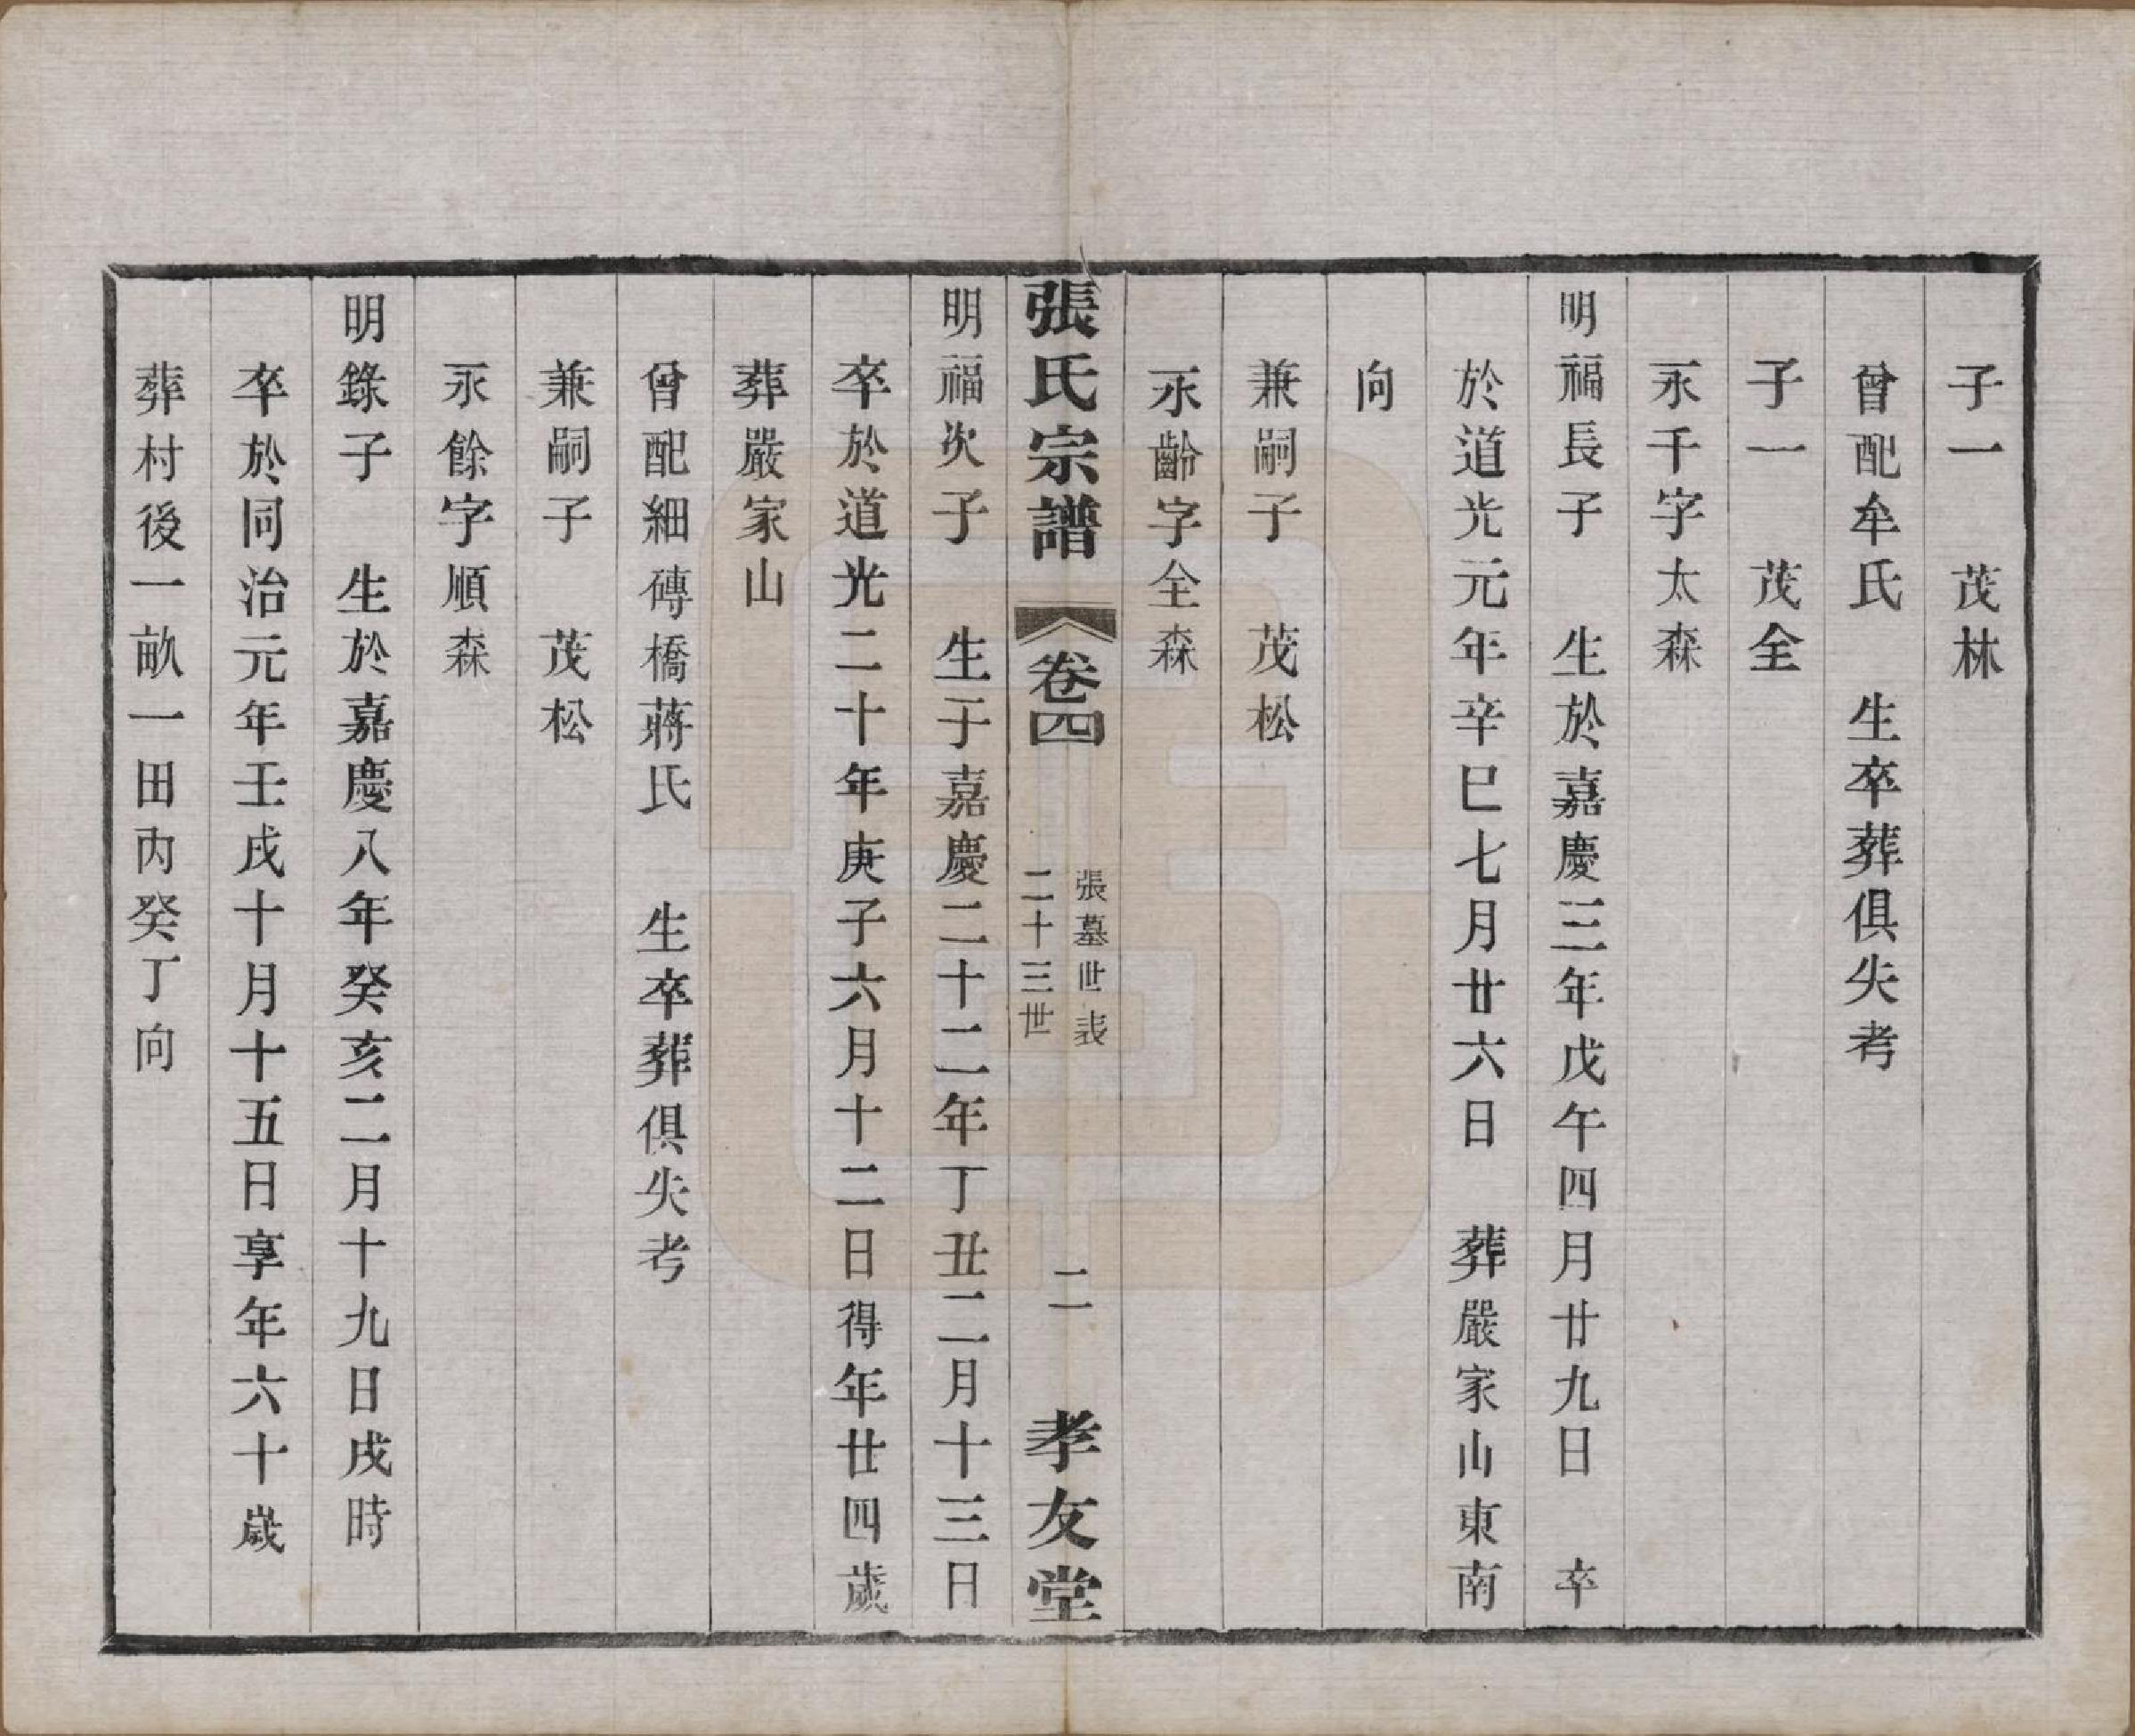 子一　茂林
曾配牟氏　生卒葬俱失考
子一　茂全
永千字太森
明福長子　生於嘉慶三年戊午四月廿九日　卒
於道光元年辛巳七月廿六日　葬嚴家山東南
向
兼嗣子　茂松
永齡字全森
張氏宗譜　卷四　張墓世表　二十三世　二　孝友堂
明福次子　生于嘉慶二十二年丁丑二月十三日
卒於道光二十年庚子六月十二日得年廿四歲
葬嚴家山
曾配細磚橋蔣氏　生卒葬俱失考
兼嗣子　茂松
永餘字順森
明錄子　生於嘉慶八年癸亥二月十九日戌時
卒於同治元年壬戌十月十五日享年六十歲
葬村後一畝一田內癸丁向